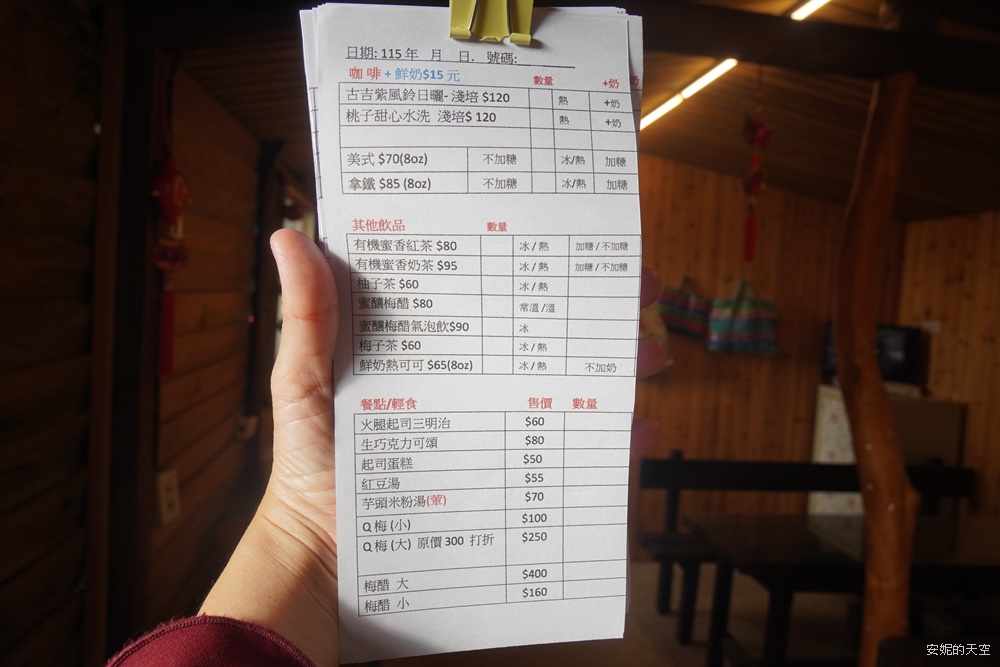 日期: 115 年 月 日. 號碼:
咖啡 + 鮮奶$15 元 數量 +奶
古吉紫風鈴日曬- 淺培 $120 熱 +奶
桃子甜心水洗 淺培$ 120 熱 +奶
美式 $70(8oz) 不加糖 冰/熱 加糖
拿鐵 $85 (8oz) 不加糖 冰/熱 加糖
其他飲品 數量
有機蜜香紅茶 $80 冰 / 熱 加糖 / 不加糖
有機蜜香奶茶 $95 冰 / 熱 加糖 / 不加糖
柚子茶 $60 冰 / 熱
蜜釀梅醋 $80 常溫 /溫
蜜釀梅醋氣泡飲$90 冰
梅子茶 $60 冰 / 熱
鮮奶熱可可 $65(8oz) 冰 / 熱 不加奶
餐點/輕食 售價 數量
火腿起司三明治 $60
生巧克力可頌 $80
起司蛋糕 $50
紅豆湯 $55
芋頭米粉湯(葷) $70
Q 梅 (小) $100
Q 梅 (大) 原價 300 打折 $250
梅醋 大 $400
梅醋 小 $160
安妮的天空